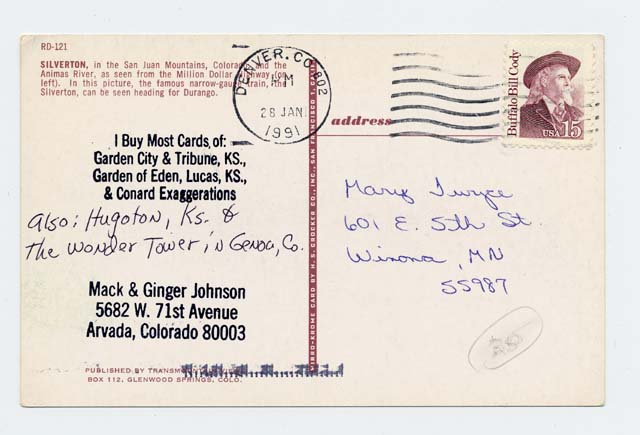 RD-121
SILVERTON, in the San Juan Mountains, Colorado and the
Animas River, as seen from the Million Dollar Highway (on
left). In this picture, the famous narrow-gauge train, the
Silverton, can be seen heading for Durango.
DENVER, CO 802
PM
28 JAN
1991
Buffalo Bill Cody
USA 15
address
I Buy Most Cards of:
Garden City & Tribune, KS.,
Garden of Eden, Lucas, KS.,
& Conard Exaggerations
Also: Hugoton, Ks. &
The Wonder Tower, in Genoa, Co.
Mack & Ginger Johnson
5682 W. 71st Avenue
Arvada, Colorado 80003
Mary Twyce
601 E. 5th St.
Winona, MN
55987
MIRRO-KROME CARD BY H. S. CROCKER CO., INC., SAN FRANCISCO
PUBLISHED BY
BOX 112, GLENWOOD SPRINGS, COLO.